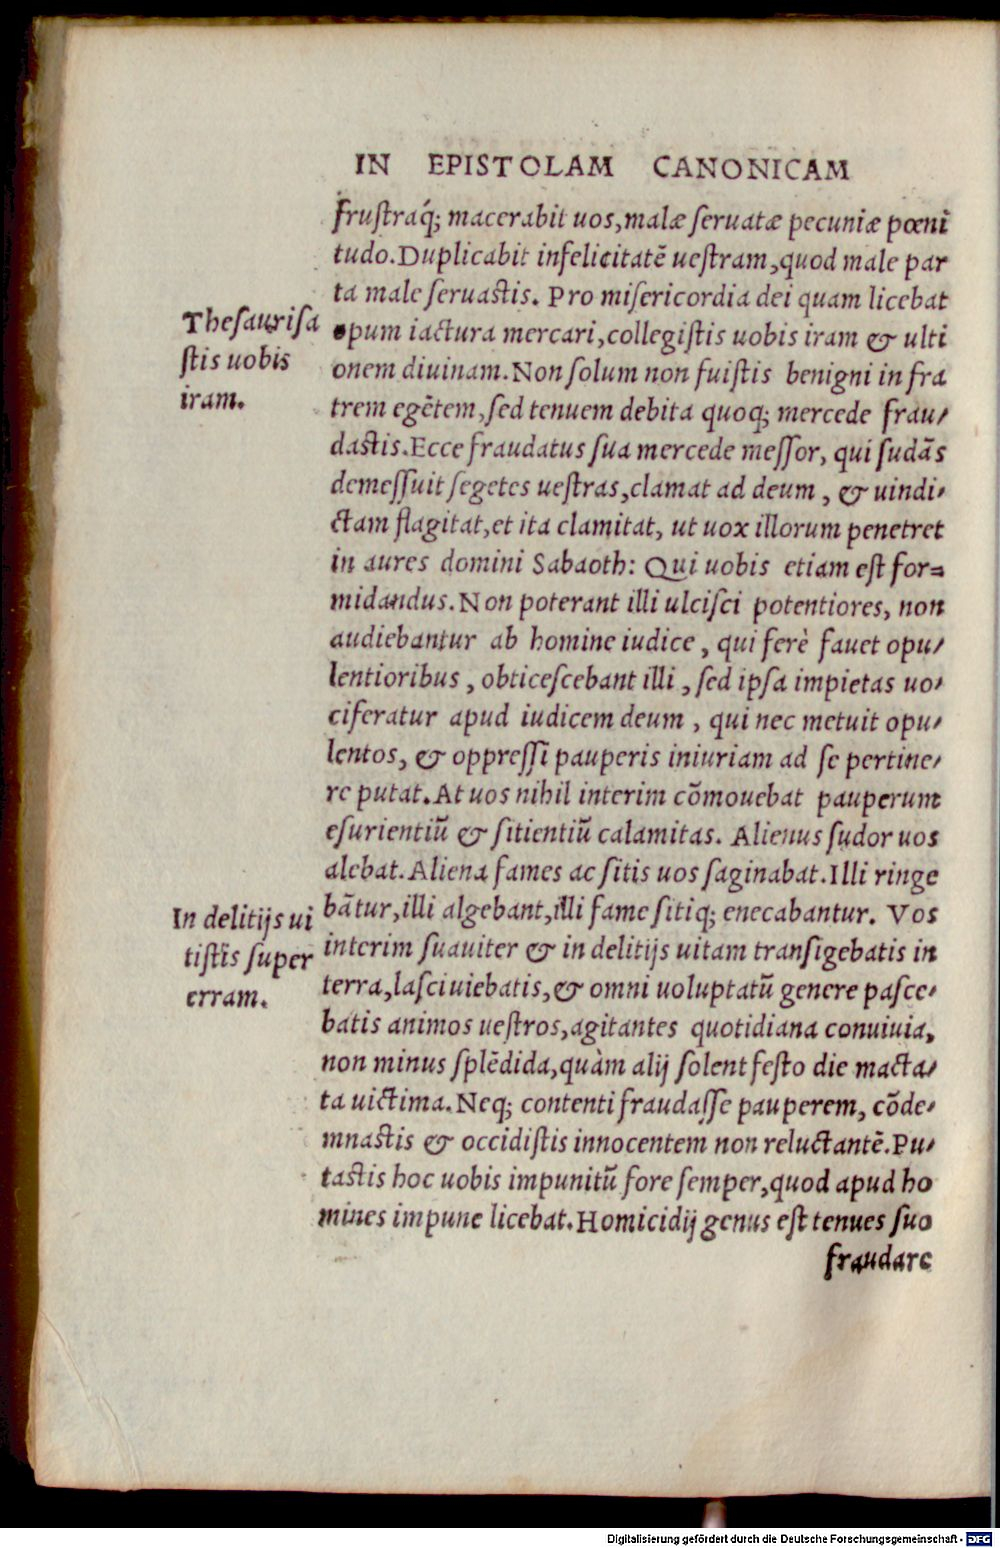 IN EPISTOLAM CANONICAM
fruſtraq́; macerabit uos, malæ ſeruatæ pecuniæ pœni
tudo. Duplicabit infelicitatē ueſtram, quod male par
ta male ſeruaſtis. Pro miſericordia dei quam licebat
opum iactura mercari, collegiſtis uobis iram & ulti
onem diuinam. Non ſolum non fuiſtis benigni in fra
trem egētem, ſed tenuem debita quoq; mercede frau-
daſtis. Ecce fraudatus ſua mercede meſſor, qui ſudās
demeſſuit ſegetes ueſtras, clamat ad deum, & uindi-
ctam flagitat, et ita clamitat, ut uox illorum penetret
in aures domini Sabaoth: Qui uobis etiam eſt for=
midandus. Non poterant illi ulciſci potentiores, non
audiebantur ab homine iudice, qui ferè fauet opu-
lentioribus, obticeſcebant illi, ſed ipſa impietas uo-
ciferatur apud iudicem deum, qui nec metuit opu-
lentos, & oppreſſi pauperis iniuriam ad ſe pertine-
re putat. At uos nihil interim cōmouebat pauperum
eſurientiū & ſitientiū calamitas. Alienus ſudor uos
alebat. Aliena fames ac ſitis uos ſaginabat. Illi ringe
bātur, illi algebant, illi fame ſitiq; enecabantur. Vos
interim ſuauiter & in delitijs uitam tranſigebatis in
terra, laſciuiebatis, & omni uoluptatū genere paſce-
batis animos ueſtros, agitantes quotidiana conuiuia,
non minus ſplēdida, quàm alij ſolent feſto die macta-
ta uictima. Neq; contenti fraudaſſe pauperem, cōde-
mnaſtis & occidiſtis innocentem non reluctantē. Pu-
taſtis hoc uobis impunitū fore ſemper, quod apud ho
mines impune licebat. Homicidij genus eſt tenues ſuo
fraudare
Theſauriſa
ſtis uobis
iram.
In delitijs ui
tiſtis ſuper
erram.
Digitalisierung gefördert durch die Deutsche Forschungsgemeinschaft - DFG